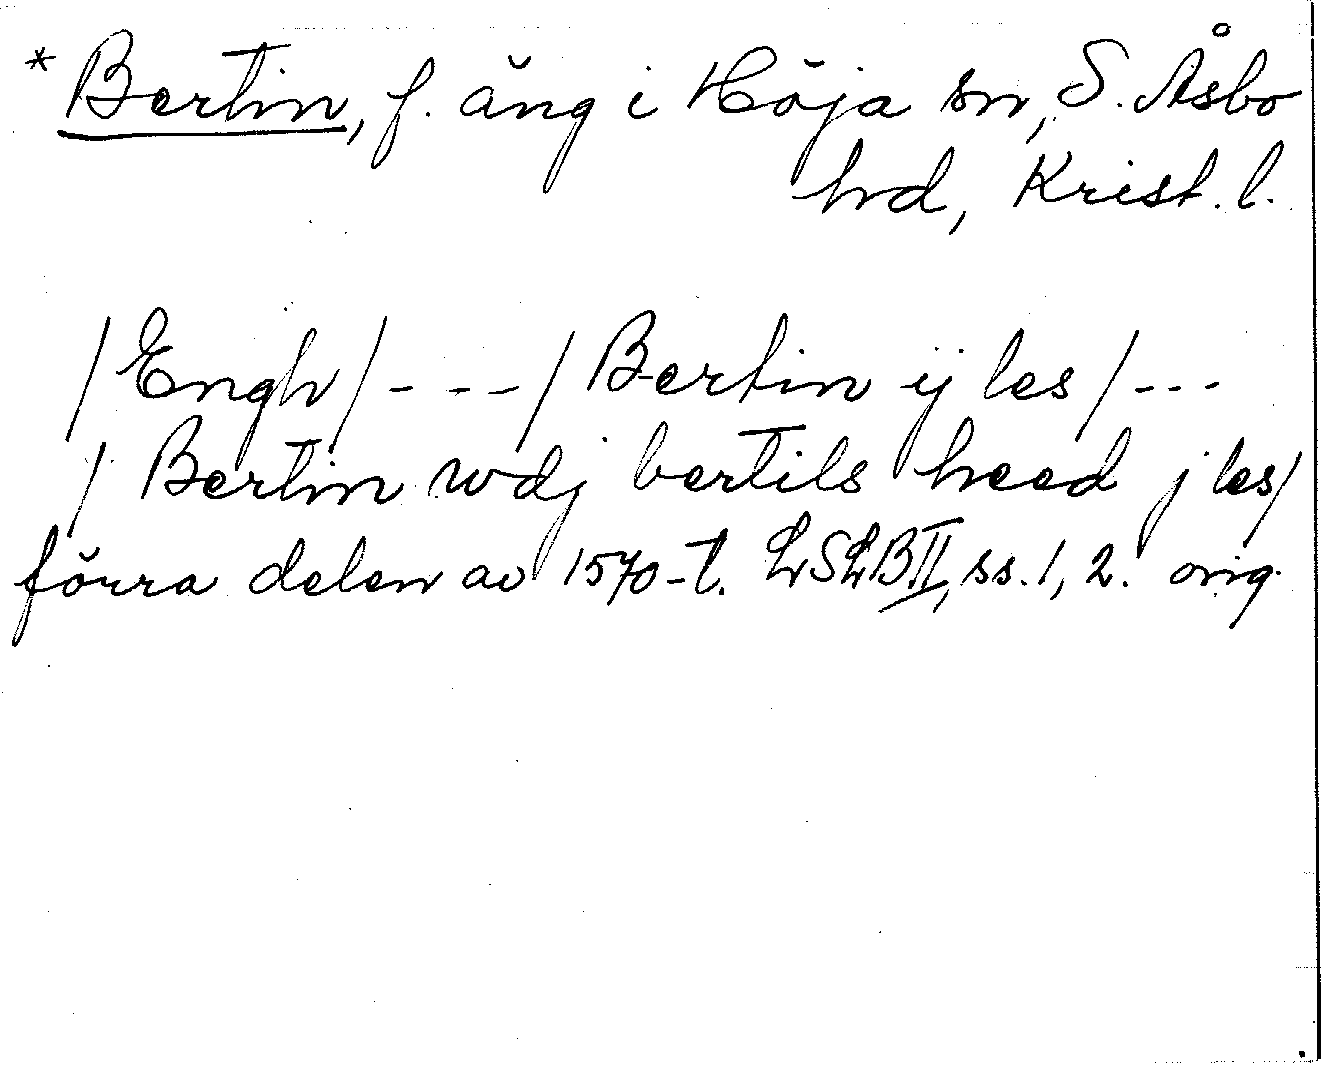 * Bertin, f. äng i Höja sn, S. Åsbo
hd, Krist. l.
/Engh/---/Bertin ij les/---
/Bertin wdj bertils heed j les/
förra delen av 1570-t. LSLB II, ss. 1, 2. orig.